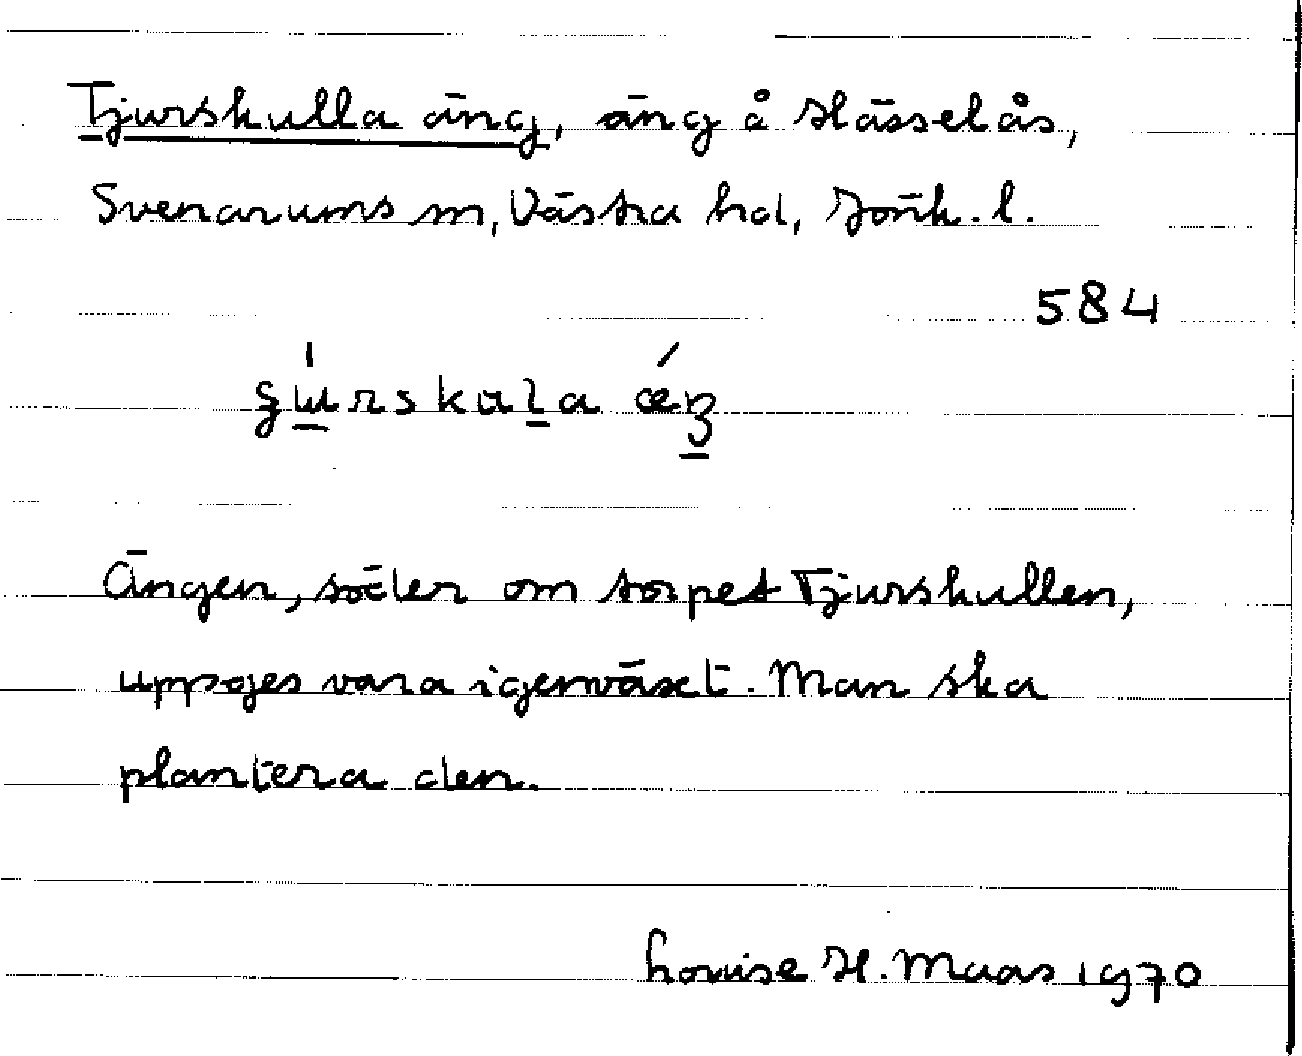 Tjurskulla äng, äng å Hässelås,
Svenarums sn, Västra hd, Jönk. l.
584
Ängen, söder om torpet Tjurskullen,
uppges vara igenväxt. Man ska
plantera den.
Louise H. Maas 1970